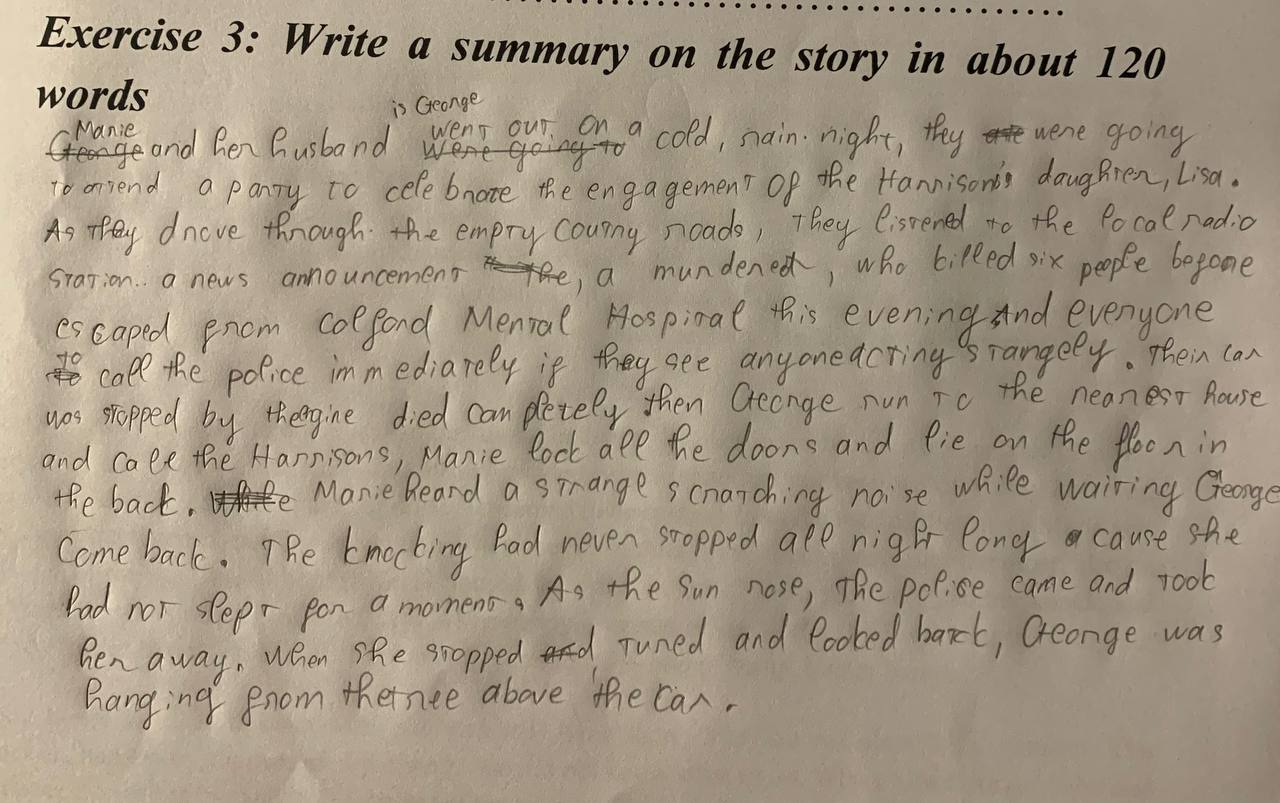 Exercise 3: Write a summary on the story in about 120
words
is George
Marie
George and her husband went out on a cold, rain. night, they are were going
were going to
to attend a party to celebrate the engagement of the Harrison's daughter, Lisa.
As they drove through the empty country roads, they listened to the local radio
station.. a news announcement the, a murdered, who killed six people before
escaped from Colford Mental Hospital this evening and everyone
to call the police immediately if they see anyone acting strangely. Their car
was stopped by the engine died completely then George run to the nearest house
and call the Harrisons, Marie lock all the doors and lie on the floor in
the back. While Marie heard a strange scratching noise while waiting George
come back. The knocking had never stopped all night long a cause she
had not slept for a moment. As the sun rose, the police came and took
her away. When she stopped and turned and looked back, George was
hanging from the tree above the car.